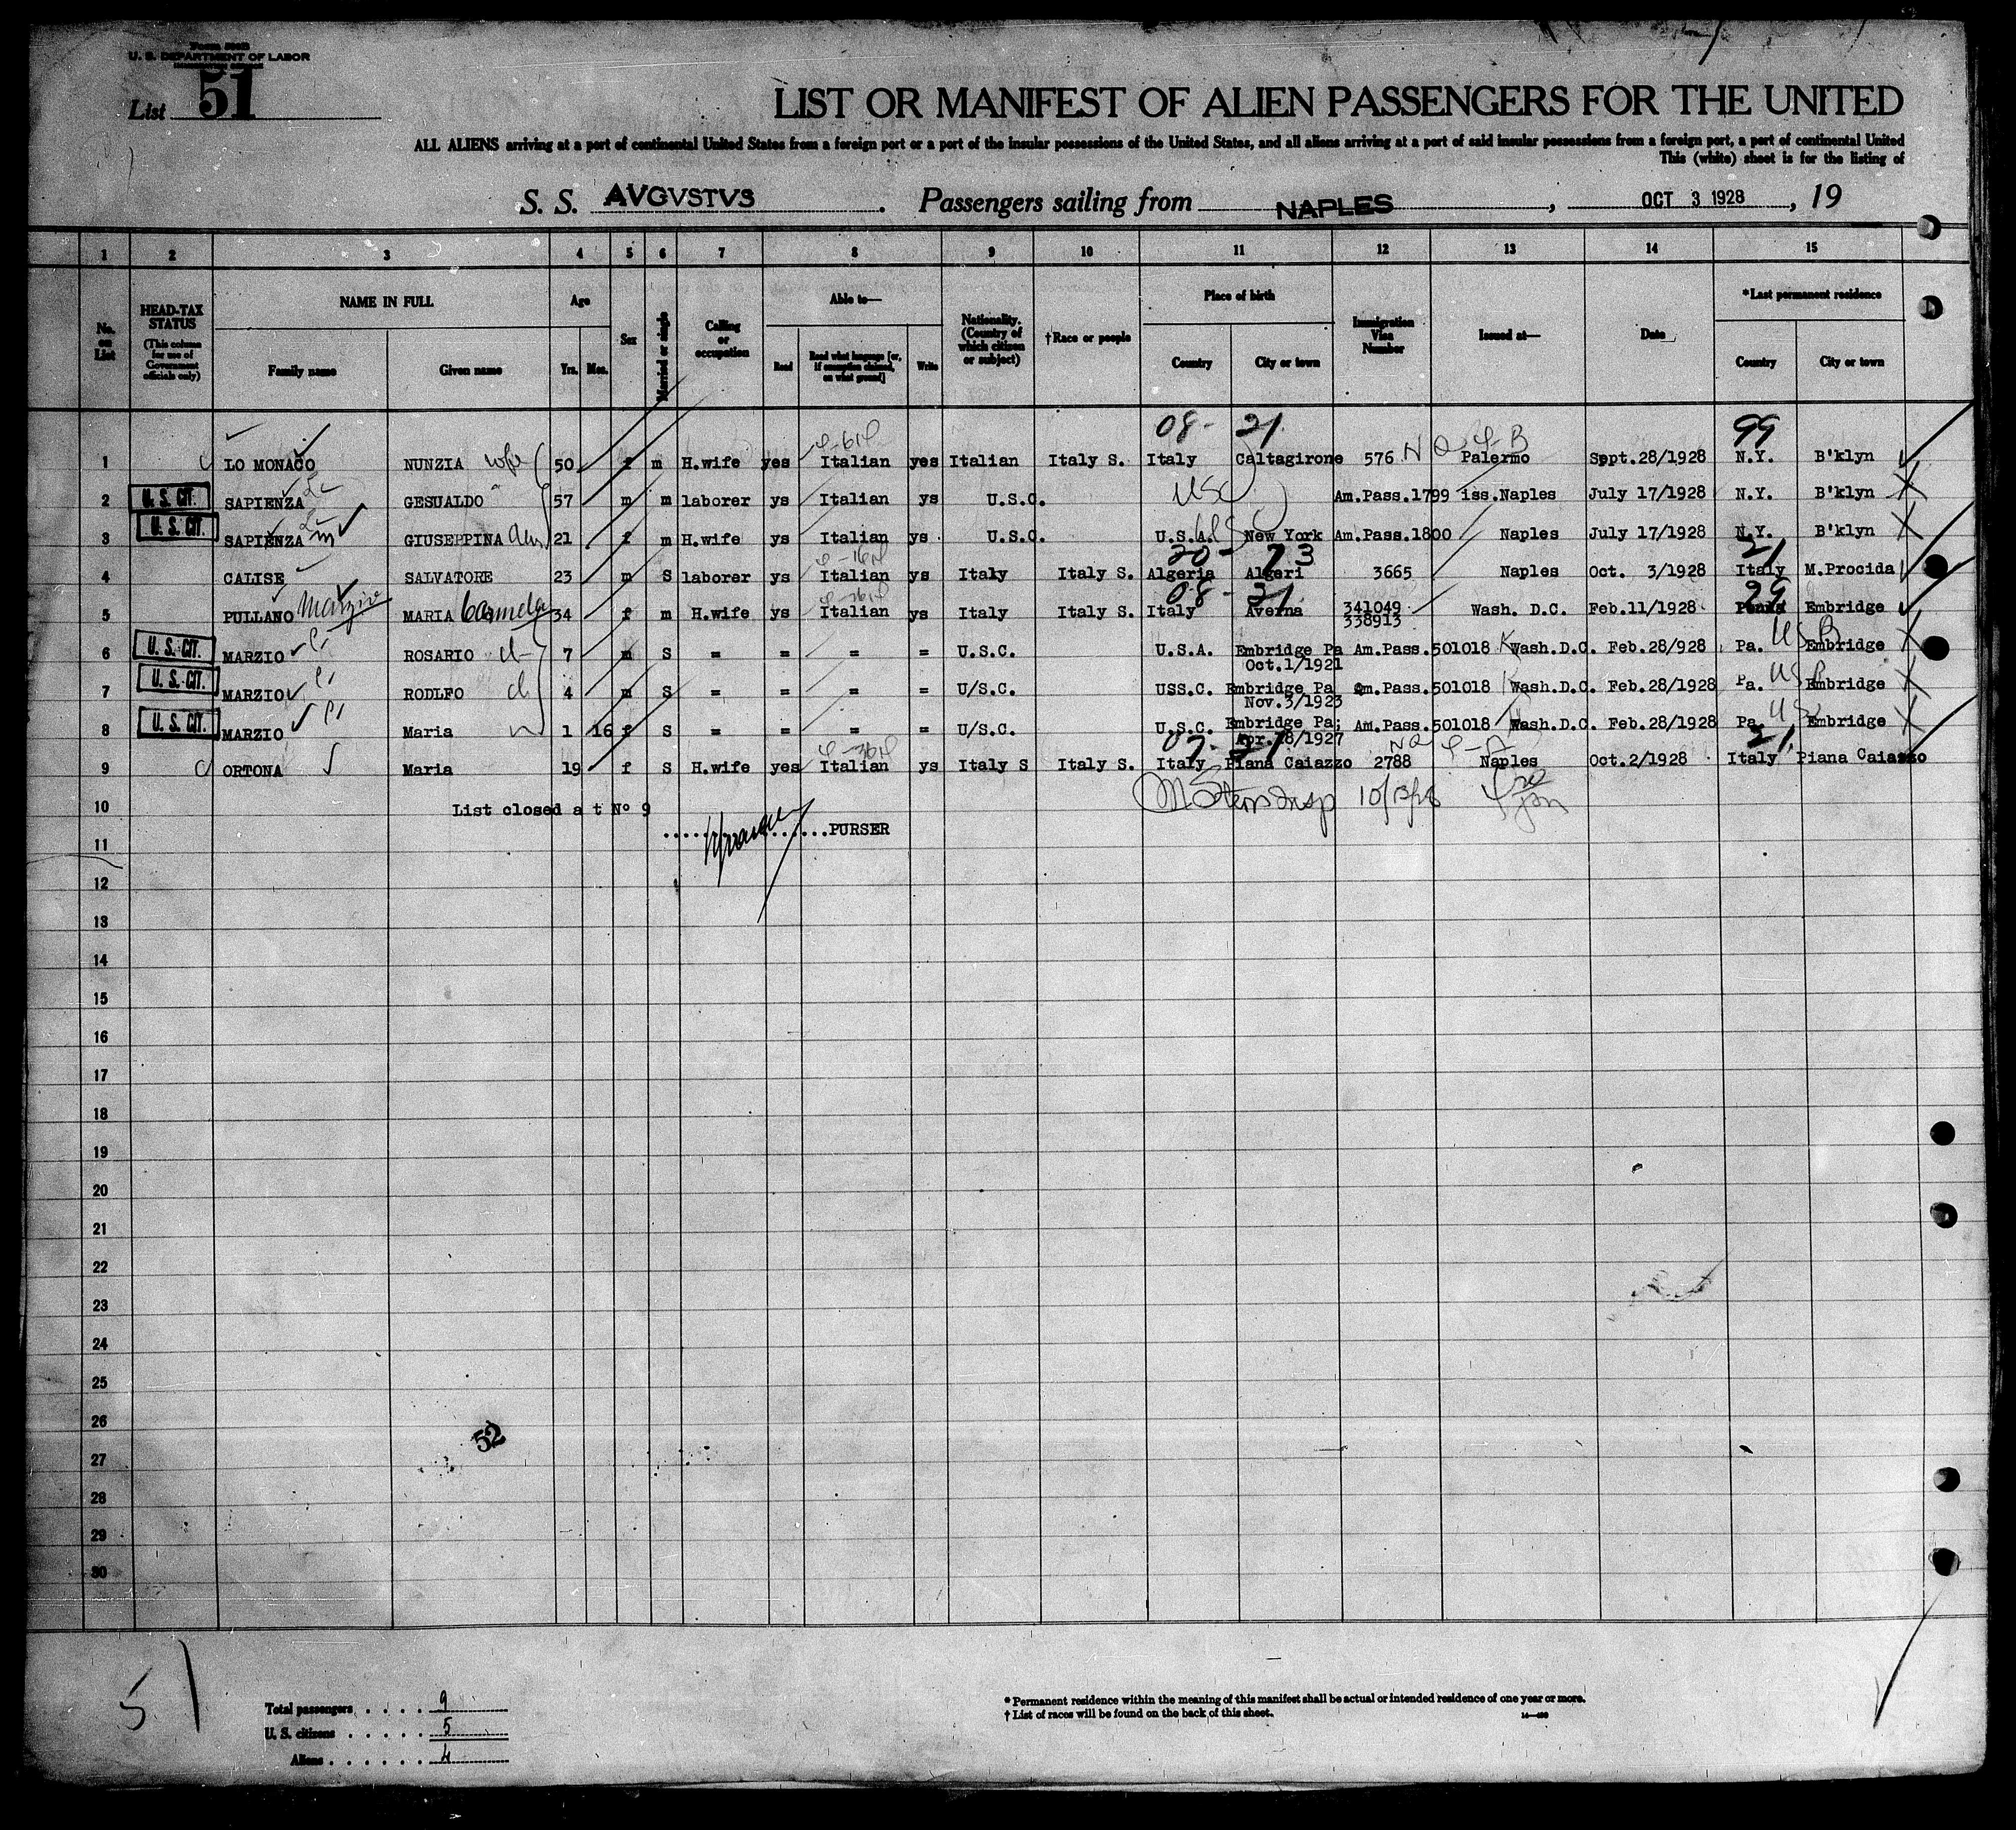 U. S. DEPARTMENT OF LABOR
List 51
LIST OR MANIFEST OF ALIEN PASSENGERS FOR THE UNITED
ALL ALIENS arriving at a port of continental United States from a foreign port or a port of the insular possessions of the United States, and all aliens arriving at a port of said insular possessions from a foreign port, a port of continental United
This (white) sheet is for the listing of
S. S. AVGVSTVS. Passengers sailing from NAPLES, OCT 3 1928, 19
1 2 3 4 5 6 7 8 9 10 11 12 13 14 15
No. on List
HEAD-TAX STATUS (This column for use of Government officials only)
NAME IN FULL
Family name Given name
Age
Yrs. Mos.
Sex
Married or single
Calling or occupation
Able to—
Read Read what language [or, if exemption claimed, on what ground] Write
Nationality. (Country of which citizen or subject)
†Race or people
Place of birth
Country City or town
Immigration Visa Number
Issued at—
Date
*Last permanent residence
Country City or town
08- 21 99
1 LO MONACO NUNZIA wife 50 f m H.wife yes Italian yes Italian Italy S. Italy Caltagirone 576 Palermo Sppt.28/1928 N.Y. B'klyn
2 U. S. CIT. SAPIENZA GESUALDO 57 m m laborer ys Italian ys U.S.C. USC Am.Pass.1799 iss.Naples July 17/1928 N.Y. B'klyn
3 U. S. CIT. SAPIENZA GIUSEPPINA 21 f m H.wife ys Italian ys U.S.C. U.S.A. New York Am.Pass.1800 Naples July 17/1928 N.Y. B'klyn
20- 73 21
4 CALISE SALVATORE 23 m S laborer ys Italian ys Italy Italy S. Algeria Algeri 3665 Naples Oct. 3/1928 Italy M.Procida
08- 21 29
5 PULLANO Marzio MARIA Carmela 34 f m H.wife ys Italian ys Italy Italy S. Italy Averna 341049 338913 Wash. D.C. Feb.11/1928 Embridge
6 U. S. CIT. MARZIO ROSARIO 7 m S = = = = U.S.C. U.S.A. Embridge Pa Oct.1/1921 Am.Pass.501018 Wash.D.C. Feb.28/928 Pa. Embridge
7 U. S. CIT. MARZIO RODLFO 4 m S = = = = U/S.C. USS.C. Embridge Pa Nov.3/1923 Am.Pass.501018 Wash.D.C. Feb.28/1928 Pa. Embridge
8 U. S. CIT. MARZIO Maria 1 16 f S = = = = U/S.C. U.S.C. Embridge Pa; Apr.18/1927 Am.Pass.501018 Wash.D.C. Feb.28/1928 Pa Embridge
07- 21 21
9 ORTONA Maria 19 f S H.wife yes Italian ys Italy S Italy S. Italy Piana Caiazzo 2788 Naples Oct.2/1928 Italy Piana Caiazzo
10 List closed a t Nº 9
11 PURSER
12
13
14
15
16
17
18
19
20
21
22
23
24
25
26
52
27
28
29
30
51
Total passengers . . . . 9
U. S. citizens . . . . . 5
Aliens . . . . . . 4
* Permanent residence within the meaning of this manifest shall be actual or intended residence of one year or more.
† List of races will be found on the back of this sheet.